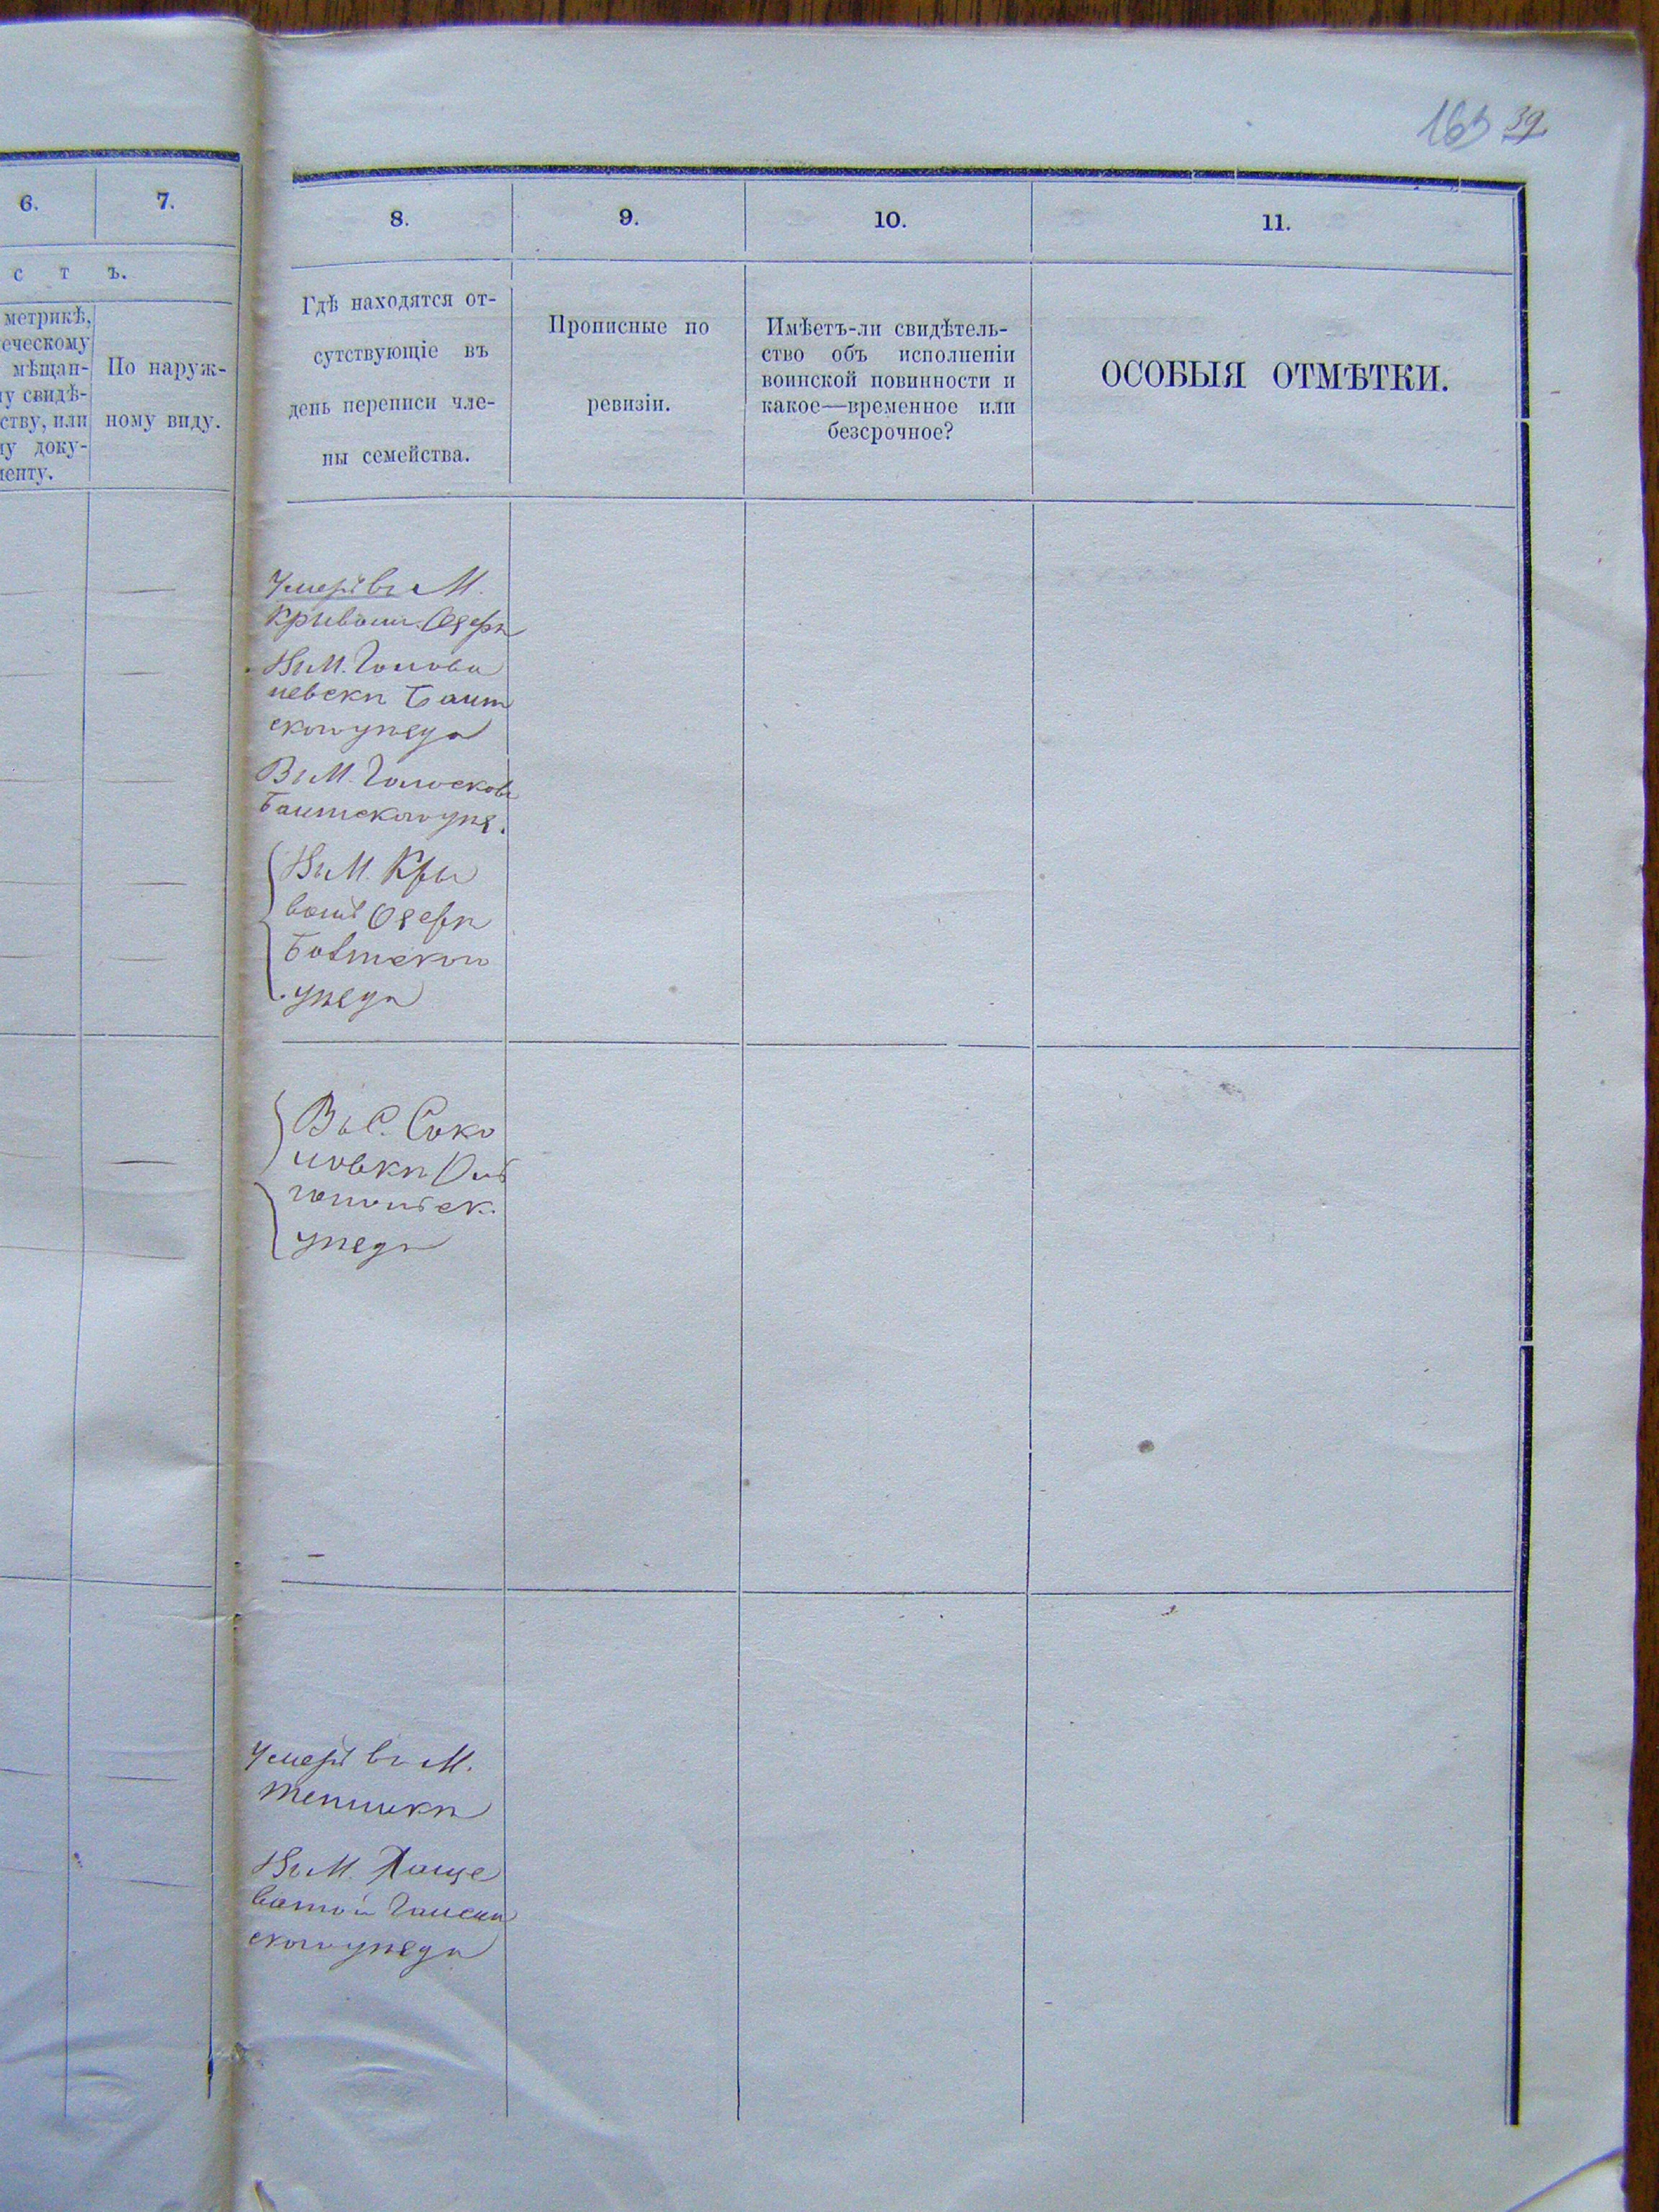 163 39.
6. 7. 8. 9. 10. 11.
с т ъ.
метрикѣ,
еческому
мѣщан-
у свидѣ-
ству, или
у доку-
менту.
По наруж-
ному виду.
Гдѣ находятся от-
сутствующіе въ
день переписи чле-
ны семейства.
Прописные по
ревизіи.
Имѣетъ-ли свидѣтель-
ство объ исполненіи
воинской повинности и
какое—временное или
безсрочное?
ОСОБЫЯ ОТМѢТКИ.
Умеръ въ М.
Кривомъ Озерѣ
Въ М. Голова
невскѣ Балт
скаго уѣзда
Въ М. Голосково
Балтскаго уѣз.
Въ М. Кри
вомъ Озерѣ
Балтскаго
уѣзда
Въ С. Соко
ловкѣ
уѣзда
Умеръ въ М.
Тепликѣ
Въ М. Хаще
ватой Гайсин
скаго уѣзда